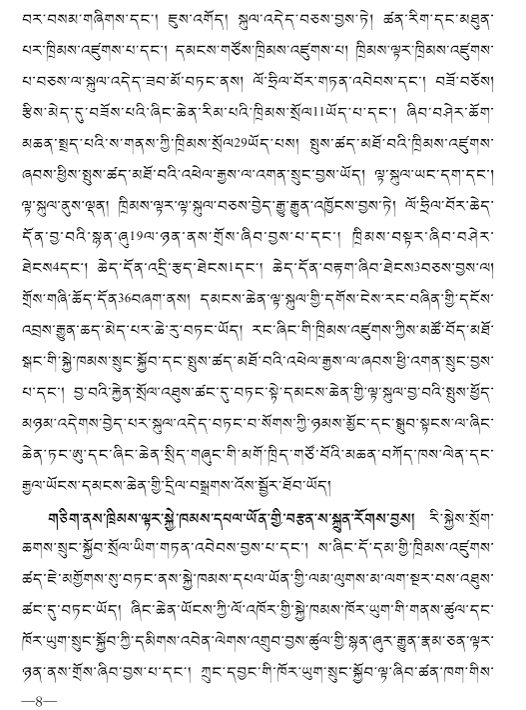 བར་བསམ་གཞིགས་དང་། ཇུས་འགོད། སྐུལ་འདེད་བཅས་བྱས་ཏེ། ཚན་རིག་དང་མཐུན་
པར་ཁྲིམས་འཛུགས་པ་དང་། དམངས་གཙོས་ཁྲིམས་འཛུགས་པ། ཁྲིམས་ལྟར་ཁྲིམས་འཛུགས་
པ་བཅས་ལ་སྐུལ་འདེད་ཟབ་མོ་བཏང་ནས། ལོ་ཧྲིལ་བོར་གཏན་འབེབས་དང་། བཟོ་བཅོས།
རྩིས་མེད་དུ་བཟོས་པའི་ཞིང་ཆེན་རིམ་པའི་ཁྲིམས་སྲོལ11ཡོད་པ་དང་། ཞིབ་བཤེར་ཆོག་
མཆན་སྤྲད་པའི་ས་གནས་ཀྱི་ཁྲིམས་སྲོལ29ཡོད་པས། སྤུས་ཚད་མཐོ་བའི་ཁྲིམས་འཛུགས་
ཞབས་ཕྱིས་སྤུས་ཚད་མཐོ་བའི་འཕེལ་རྒྱས་ལ་འགན་སྲུང་བྱས་ཡོད། ལྟ་སྐུལ་ཡང་དག་དང་།
ལྟ་སྐུལ་ནུས་ལྡན། ཁྲིམས་ལྟར་ལྟ་སྐུལ་བཅས་བྱེད་རྒྱུ་རྒྱུན་འཁྱོངས་བྱས་ཏེ། ལོ་ཧྲིལ་བོར་ཆེད་
དོན་བྱ་བའི་སྙན་ཞུ19ལ་ཉན་ནས་གྲོས་ཞིབ་བྱས་པ་དང་། ཁྲིམས་བསྟར་ཞིབ་བཤེར་
ཐེངས4དང་། ཆེད་དོན་འདྲི་རྩད་ཐེངས1དང་། ཆེད་དོན་བརྟག་ཞིབ་ཐེངས3བཅས་བྱས་ལ།
གྲོས་གཞི་ཆོད་དོན36བཞག་ནས། དམངས་ཆེན་ལྟ་སྐུལ་གྱི་དགོས་ངེས་རང་བཞིན་གྱི་དངོས་
འབྲས་རྒྱུན་ཆད་མེད་པར་ཆེ་རུ་བཏང་ཡོད། རང་ཞིང་གི་ཁྲིམས་འཛུགས་ཀྱིས་མཚོ་བོད་མཐོ་
སྒང་གི་སྐྱེ་ཁམས་སྲུང་སྐྱོབ་དང་སྤུས་ཚད་མཐོ་བའི་འཕེལ་རྒྱས་ལ་ཞབས་ཕྱི་འགན་སྲུང་བྱས་
པ་དང་། བྱ་བའི་རྐྱེན་སྲོལ་འཐུས་ཚང་དུ་བཏང་སྟེ་དམངས་ཆེན་གྱི་ལྟ་སྐུལ་བྱ་བའི་སྤུས་ཕྱོད་
མཉམ་འདེགས་བྱེད་པར་སྐུལ་འདེད་བཏང་བ་སོགས་ཀྱི་ཉམས་མྱོང་དང་སྒྲུབ་སྟངས་ལ་ཞིང་
ཆེན་ཏང་ཨུ་དང་ཞིང་ཆེན་སྲིད་གཞུང་གི་མགོ་ཁྲིད་གཙོ་བོའི་མཆན་བཀོད་ཁས་ལེན་དང་
རྒྱལ་ཡོངས་དམངས་ཆེན་གྱི་དྲིལ་བསྒྲགས་འོས་སྦྱོར་ཐོབ་ཡོད།
གཅིག་ནས་ཁྲིམས་ལྟར་སྐྱེ་ཁམས་དཔལ་ཡོན་གྱི་བརྟན་ས་སྐྲུན་རོགས་བྱས། རི་སྐྱེས་སྲོག་
ཆགས་སྲུང་སྐྱོབ་སྲོལ་ཡིག་གཏན་འབེབས་བྱས་པ་དང་། ས་ཞིང་དོ་དམ་གྱི་ཁྲིམས་འཛུགས་
ཚད་ཇེ་མགྱོགས་སུ་བཏང་ནས་སྐྱེ་ཁམས་དཔལ་ཡོན་གྱི་ལམ་ལུགས་མ་ལག་སྔར་བས་འཐུས་
ཚང་དུ་བཏང་ཡོད། ཞིང་ཆེན་ཡོངས་ཀྱི་ལོ་འཁོར་གྱི་སྐྱེ་ཁམས་ཁོར་ཡུག་གི་གནས་ཚུལ་དང་
ཁོར་ཡུག་སྲུང་སྐྱོབ་ཀྱི་དམིགས་འབེན་ལེགས་འགྲུབ་བྱས་ཚུལ་གྱི་སྙན་ཞུར་རྒྱུན་རྣམ་ཅན་ལྟར་
ཉན་ནས་གྲོས་ཞིབ་བྱས་པ་དང་། ཀྲུང་དབྱང་གི་ཁོར་ཡུག་སྲུང་སྐྱོབ་ལྟ་ཞིབ་ཚན་ཁག་གིས་
—8—